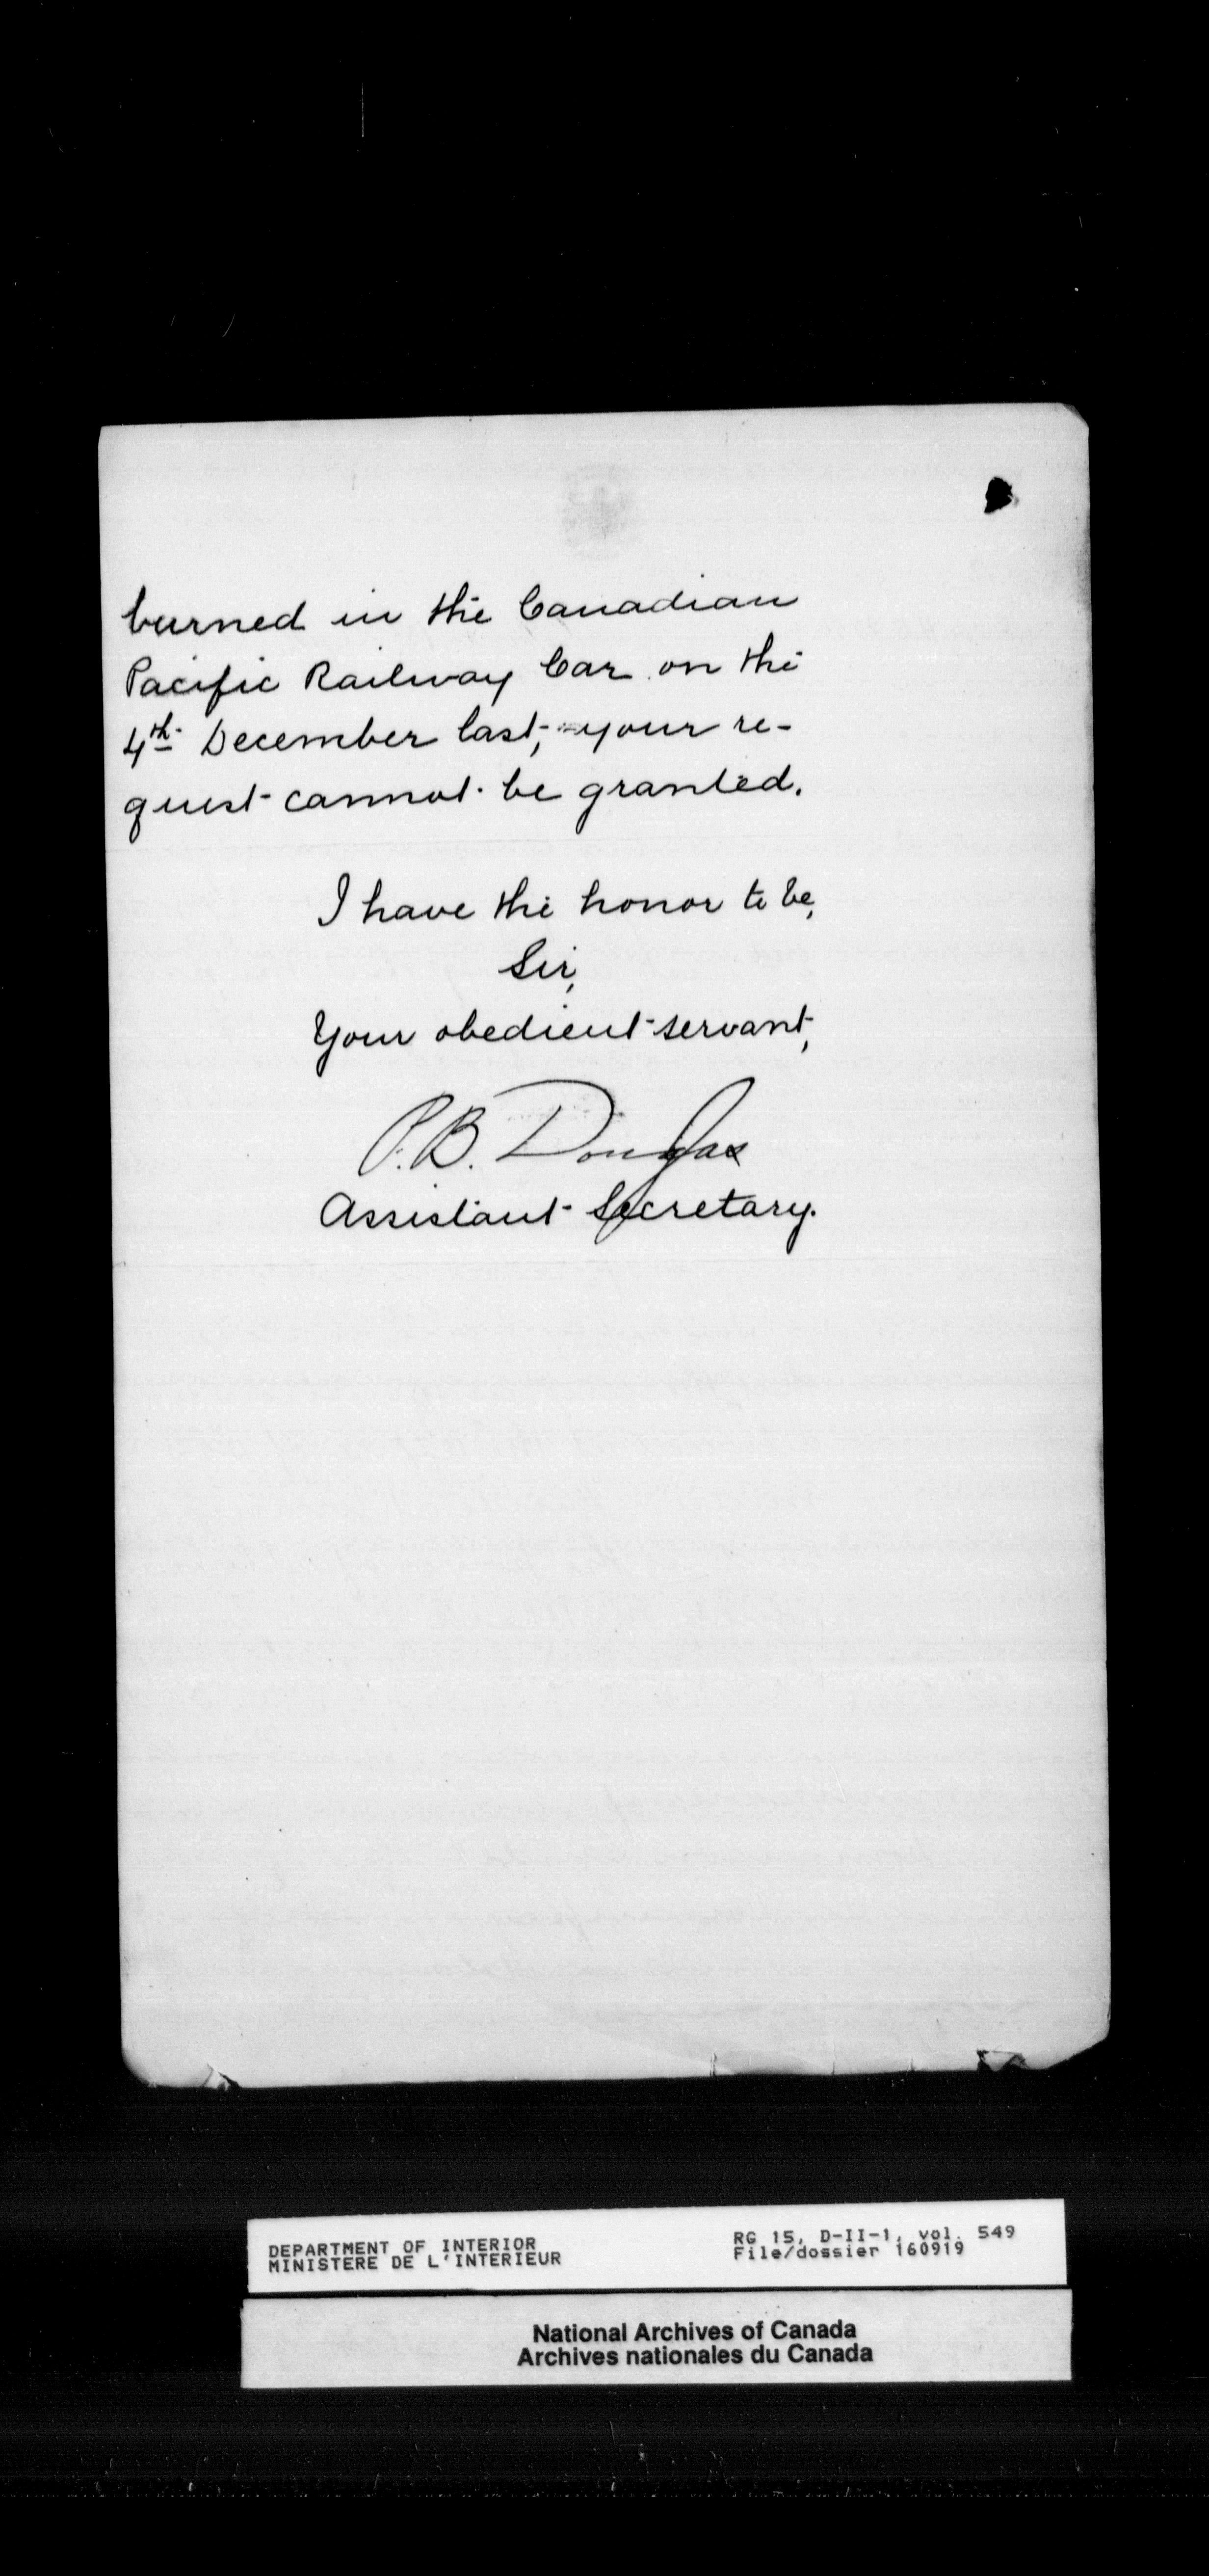 burned in the Canadian
Pacific Railway Car on the
4th December last, your re-
quest cannot be granted.
I have the honor to be,
Sir,
Your obedient servant,
P.B. Douglas
Assistant Secretary.
DEPARTMENT OF INTERIOR
MINISTERE DE L'INTERIEUR
RG 15, D-II-1, vol. 549
File/dossier 160919
National Archives of Canada
Archives nationales du Canada